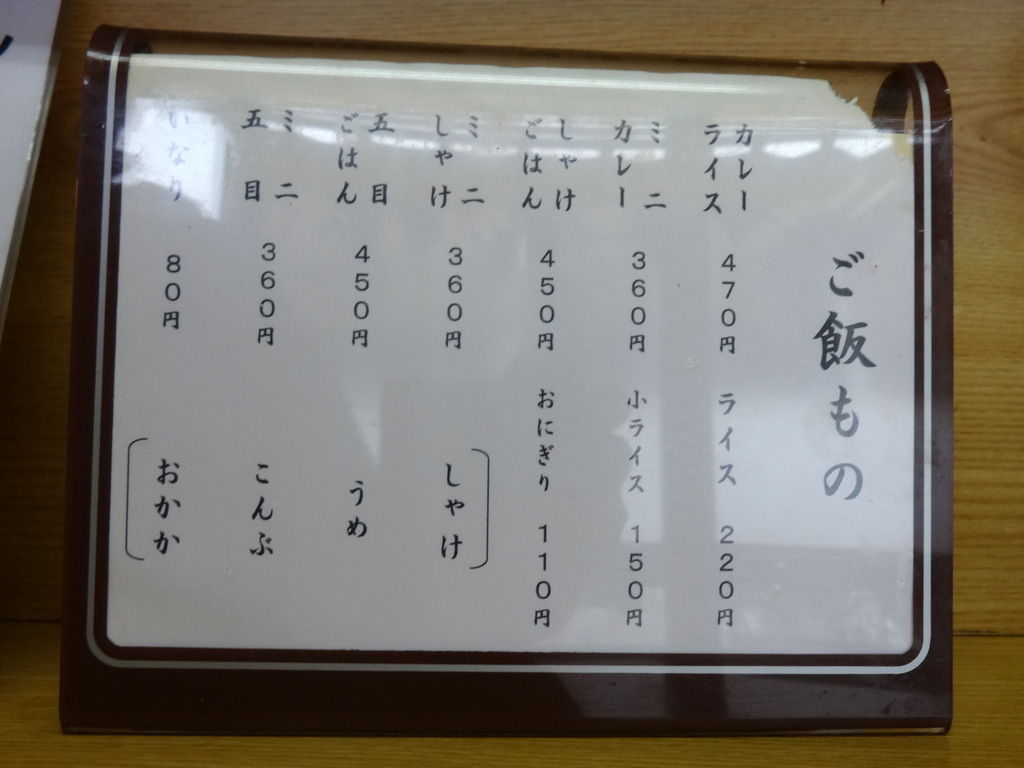 ご飯もの
カレーライス 470円
ミニカレー 360円
しゃけごはん 450円
ミニしゃけ 360円
五目ごはん 450円
ミニ五目 360円
いなり 80円
ライス 220円
小ライス 150円
おにぎり 110円
しゃけ
うめ
こんぶ
おかか